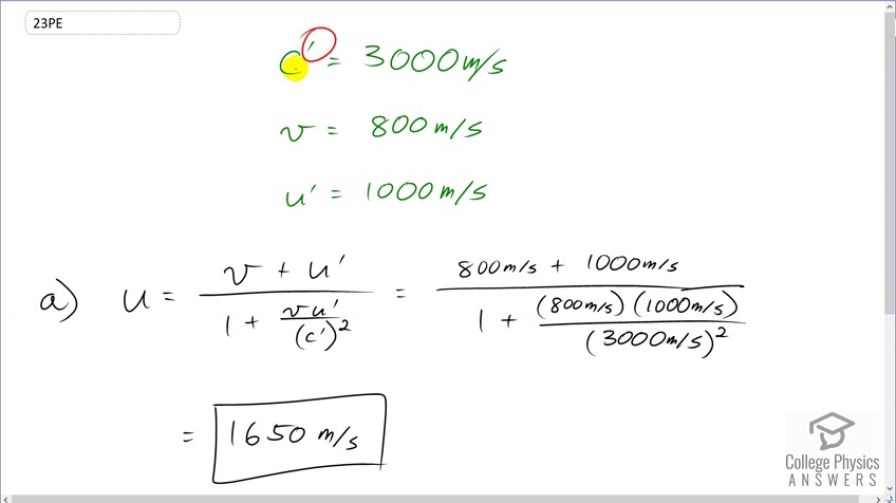 23PE
c' = 3000 m/s
v = 800 m/s
u' = 1000 m/s
a) u = (v + u') / (1 + vu'/(c')²) = (800 m/s + 1000 m/s) / (1 + (800 m/s)(1000 m/s)/(3000 m/s)²)
= 1650 m/s
College Physics
ANSWERS